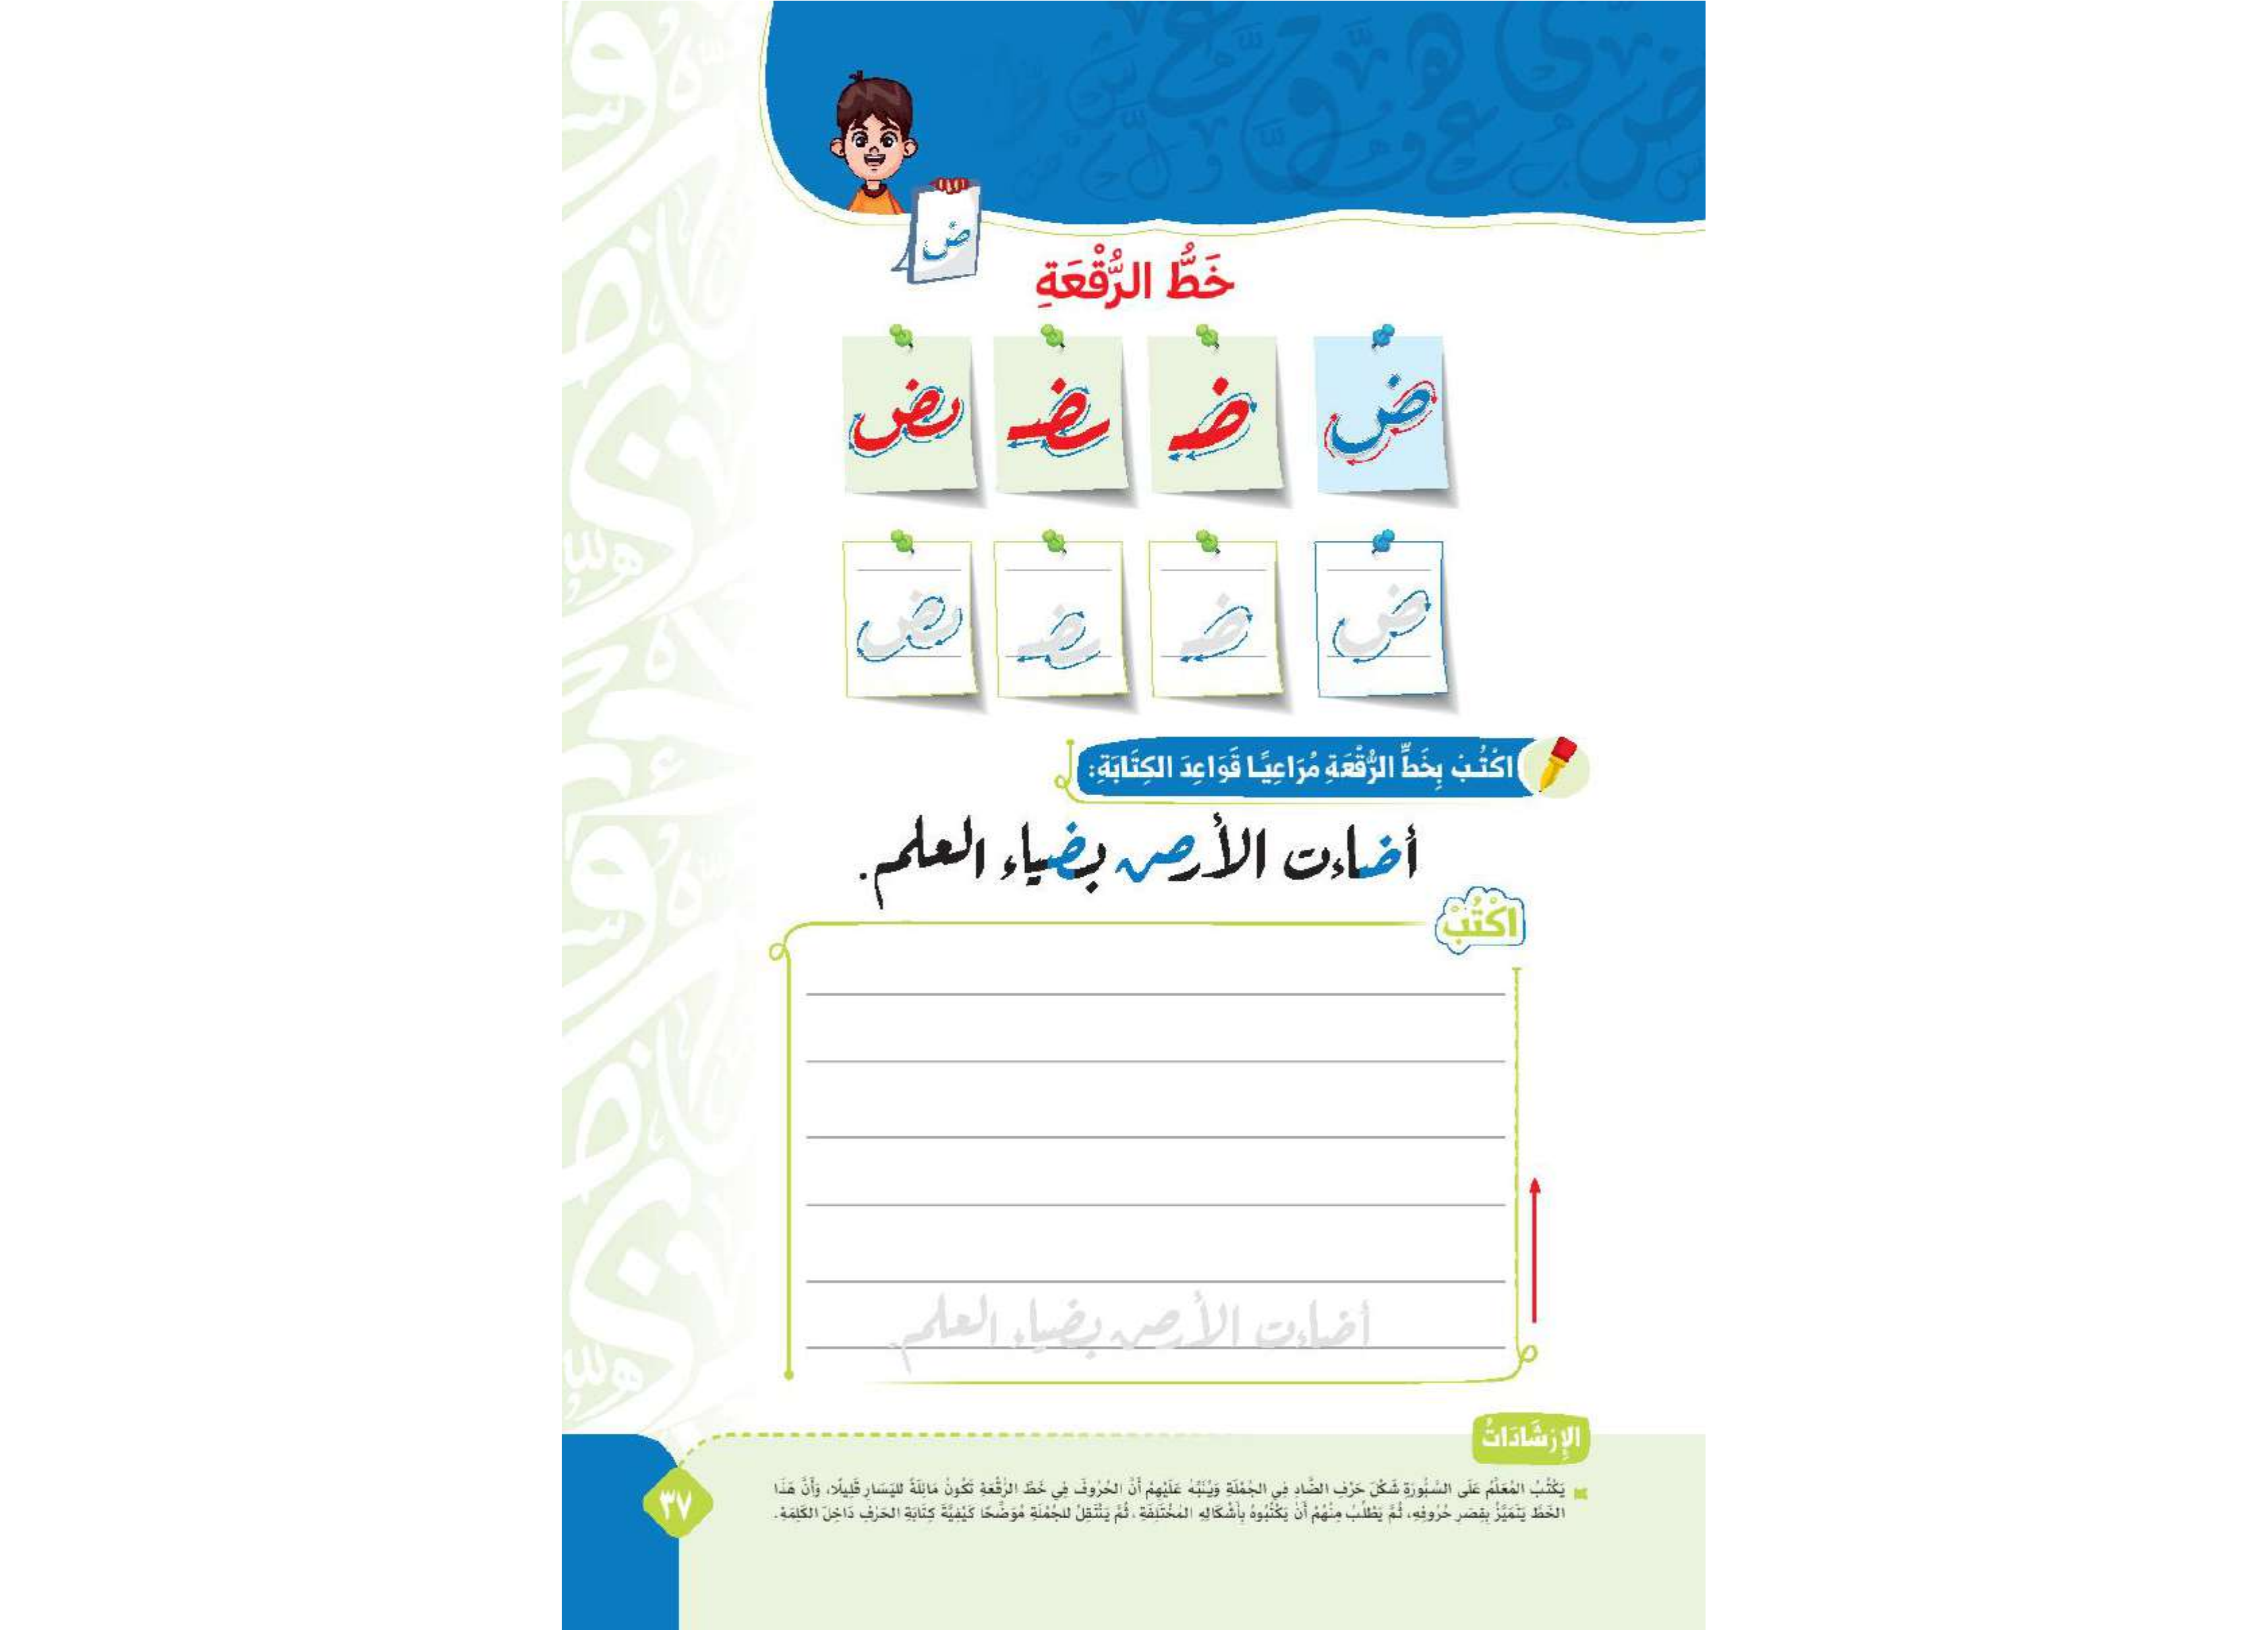 ض
خَطُّ الرُّقْعَةِ
ض ضـ ـضـ ـض
ض ضـ ـضـ ـض
اكْتُبْ بِخَطِّ الرُّقْعَةِ مُرَاعِيًا قَوَاعِدَ الكِتَابَةِ:
أضاءت الأرض بضياء العلم.
اكْتُبْ
أضاءت الأرض بضياء العلم.
الإِرْشَادَاتُ
يَكْتُبُ المُعَلِّمُ عَلَى السَّبُّورَةِ شَكْلَ حَرْفِ الضَّادِ فِي الجُمْلَةِ وَيُنَبِّهُ عَلَيْهِمْ أَنَّ الحُرُوفَ فِي خَطِّ الرُّقْعَةِ تَكُونُ مَائِلَةً لليَسَارِ قَلِيلًا، وَأَنَّ هَذَا
الخَطَّ يَتَمَيَّزُ بِقِصَرِ حُرُوفِهِ، ثُمَّ يَطْلُبُ مِنْهُمْ أَنْ يَكْتُبُوهُ بِأَشْكَالِهِ المُخْتَلِفَةِ، ثُمَّ يَنْتَقِلُ للجُمْلَةِ مُوَضِّحًا كَيْفِيَّةَ كِتَابَةِ الحَرْفِ دَاخِلَ الكَلِمَةِ.
٣٧